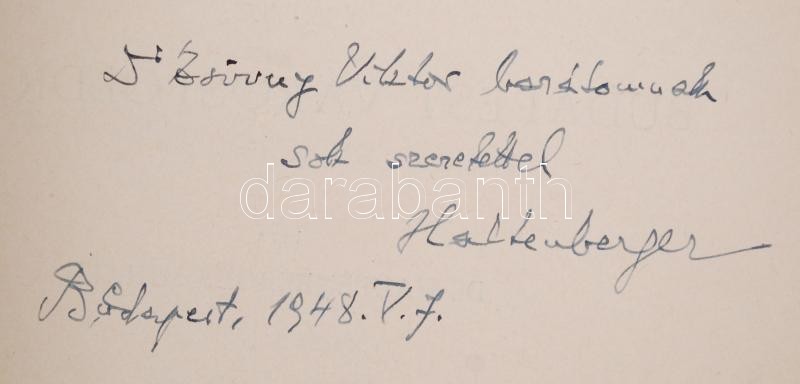 Dr Zsivny Viktor barátomnak
sok szeretettel
darabanth
Haltenberger
Budapest, 1948. V. 7.